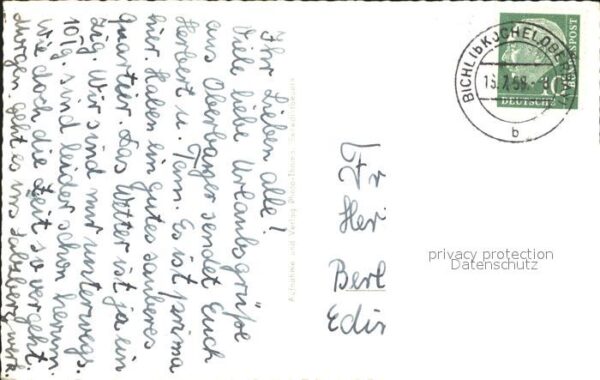 Ihr Lieben alle!
Viele liebe Urlaubsgrüße
aus Oberbayern sendet Euch
Herbert u. Fam. Es ist prima
hier. Haben ein gutes sauberes
quartier. Das Wetter ist ja ein
zig. Wir sind nur unterwegs.
10 Tg. sind leider schon herum
wie doch die Zeit so vergeht.
Morgen geht es ins Salzbergwerk.
Aufnahme und Verlag Photo-
BICHL üb KOCHEL OBERBAY
b
DEUTSCHE
BUNDESPOST
Fr
Her
Berl
Edis
privacy protection
Datenschutz